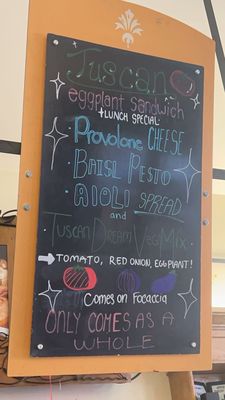 Tuscan
eggplant sandwich
+LUNCH SPECIAL:
· Provolone CHEESE
· BAISL PESTO
· AIOLI SPREAD
and
TUSCAN DREAM VEGI MIX
→ TOMATO, RED ONION, EGGPLANT!
Comes on Focaccia
ONLY COMES AS A
WHOLE